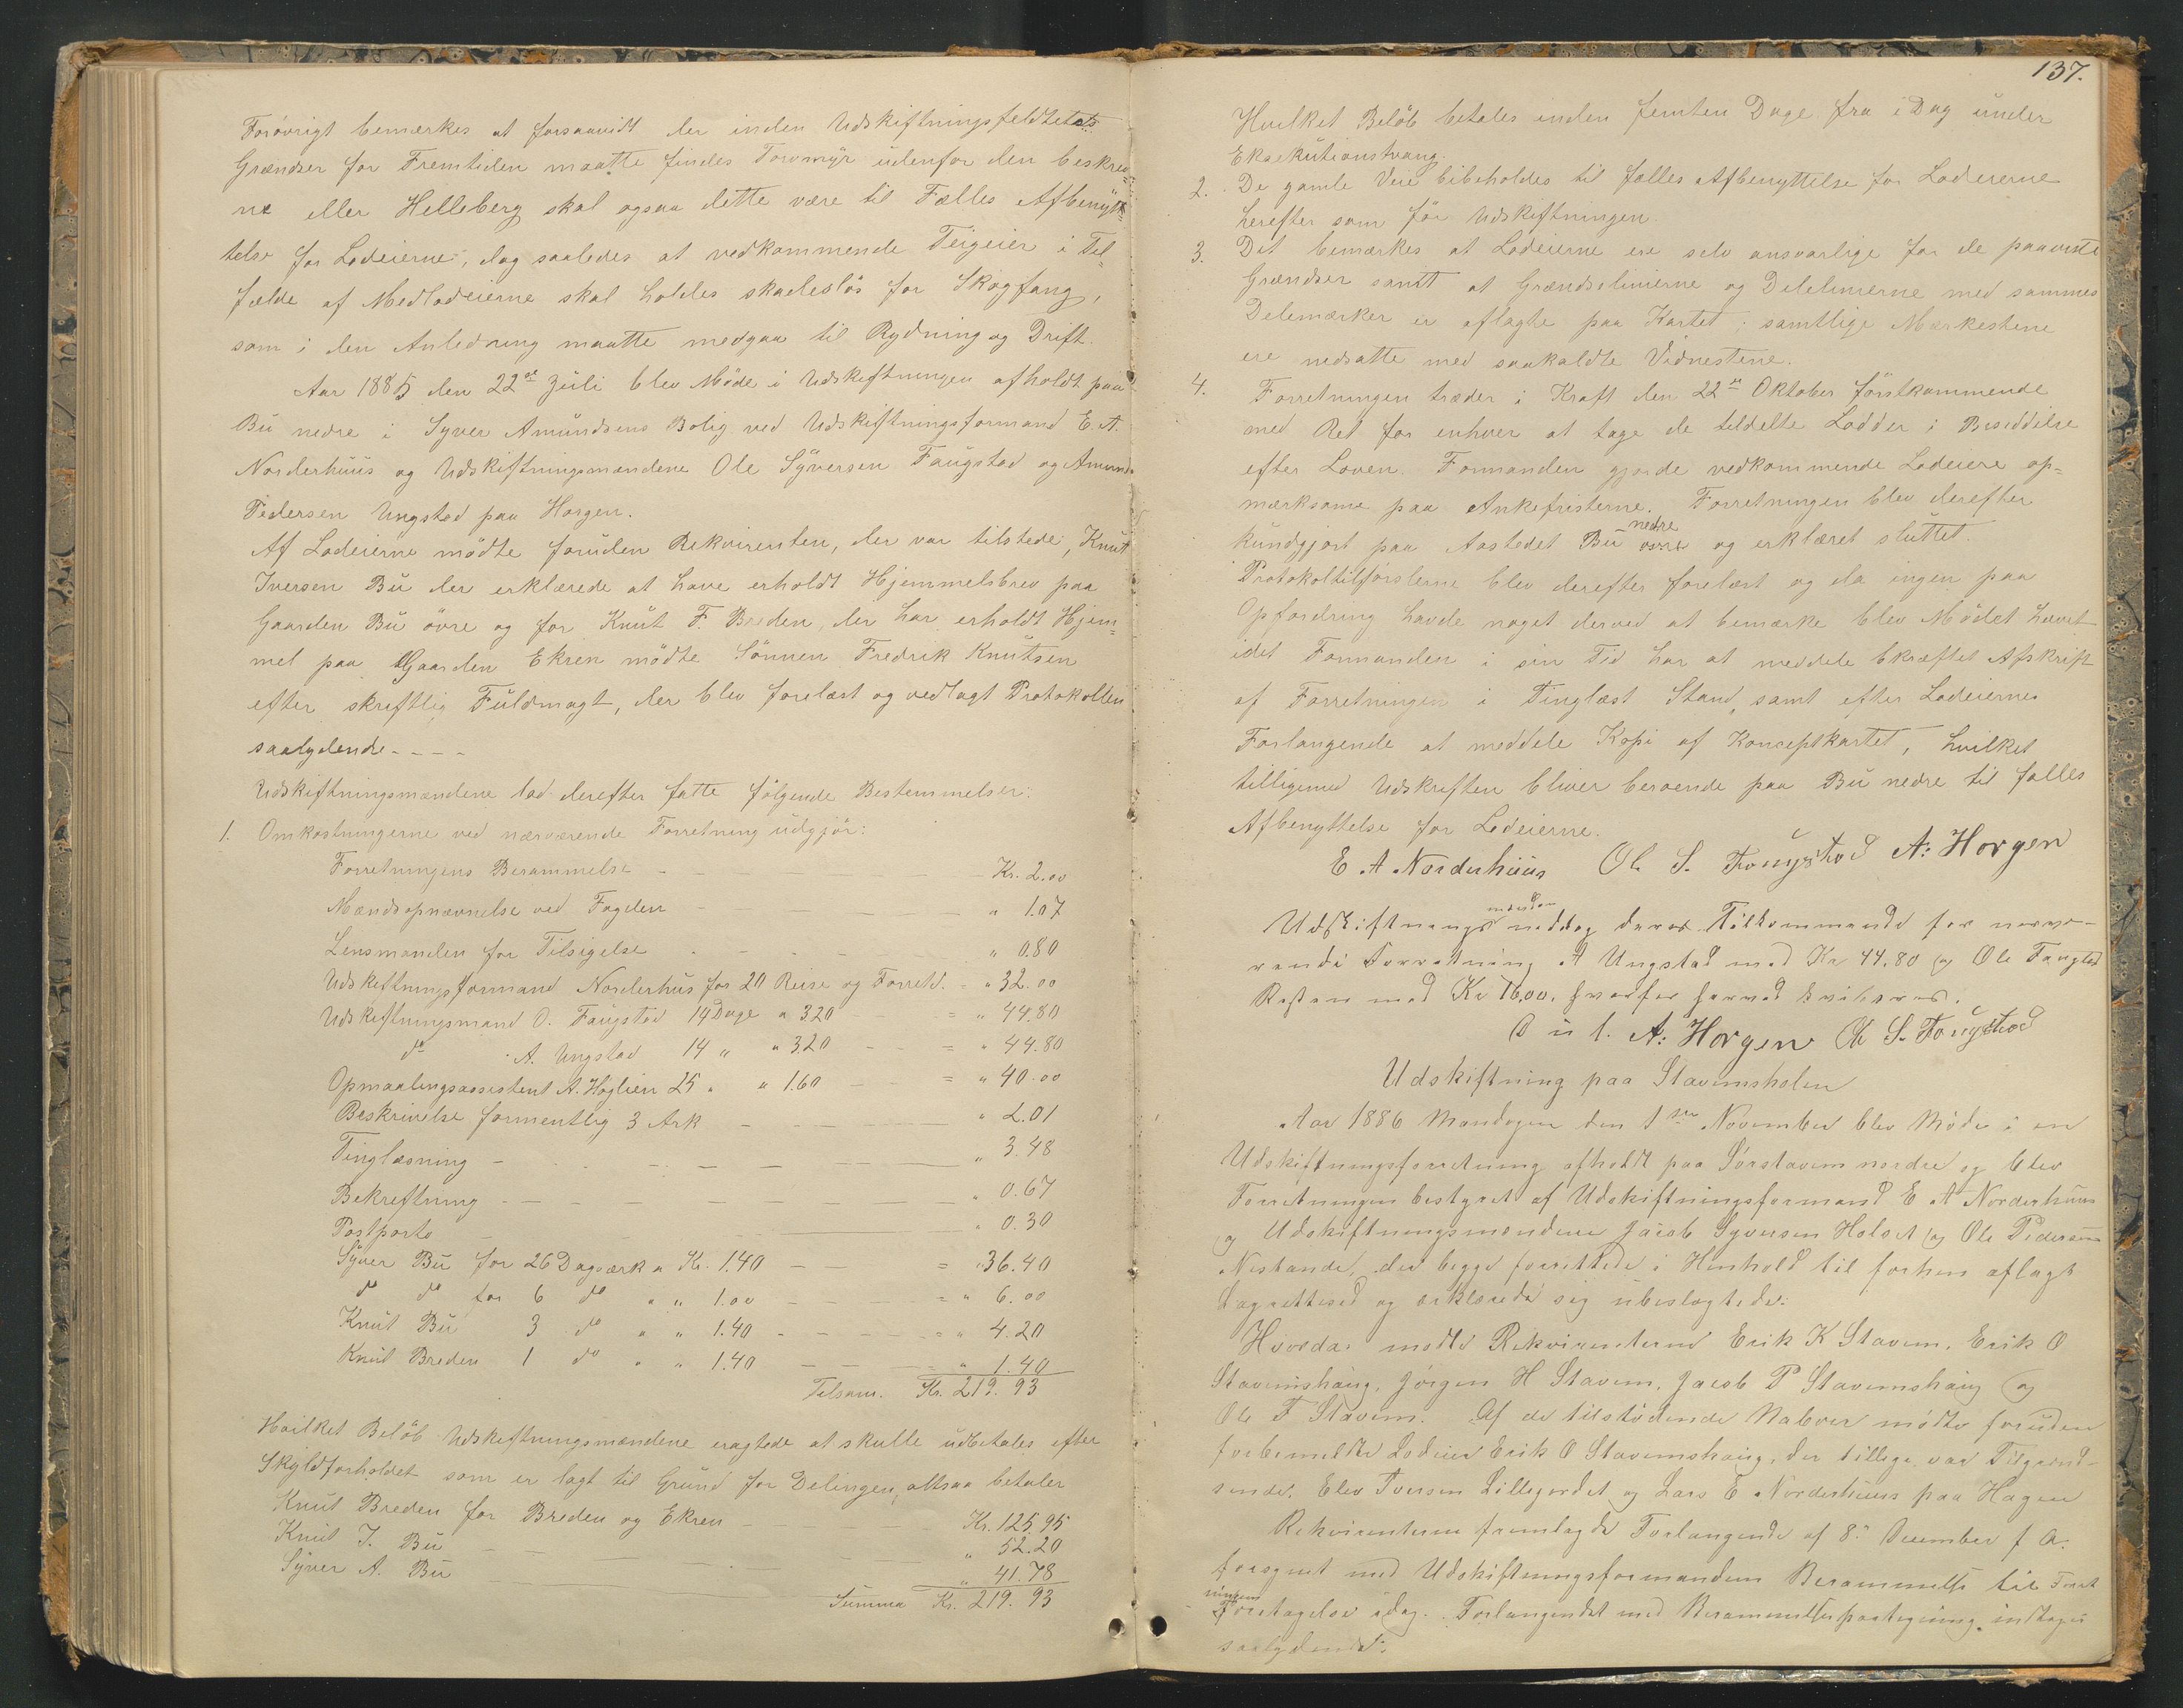 Forøvrigt bemærkes at forsaavidt der inden Udskiftningsfeldtets
Grændser for Fremtiden maatte findes Torvmyr udenfor den beskrev-
ne eller Helleberg skal ogsaa dette være til Fælles Afbenyt-
telse for Lodeierne, dog saaledes at vedkommende Teigeier i Til-
fælde af Medlodeierne skal holdes skadesløs for Skogfang,
som i den Anledning maatte medgaa til Rydning og Drift.
Aar 1885 den 22de Juli blev Møde i Udskiftningen afholdt paa
Bu nedre i Syver Amundsens Bolig ved Udskiftningsformand E. A.
Norderhuus og Udskiftningsmændene Ole Syversen Faugstad og Amund
Pedersen Ungstad paa Horgen.
Af Lodeierne mødte foruden Rekvirenten, der var tilstede, Knut
Iversen Bu der erklærede at have erholdt Hjemmelsbrev paa
Gaarden Bu øvre og for Knut F. Breden, der har erholdt Hjem=
mel paa Gaarden Ekren mødte Sønnen Fredrik Knutsen
efter skriftlig Fuldmagt, der blev forelæst og vedlagt Protokollen
saalydende - - - -
Udskiftningsmændene lod derefter fatte følgende Bestemmelser:
1. Omkostningerne ved nærværende Forretning udgjør:
Forretningens Berammelse - Kr. 2.00
Mandsopnævnelse ved Fogden - " 1.07
Lensmanden for Tilsigelse - " 0.80
Udskiftningsformand Norderhus for 20 Reise og Forretd. = " 32.00
Udskiftningsmand O. Faugstad 14 Dage a 3.20 = " 44.80
do A. Ungstad 14 " " 3.20 - = " 44.80
Opmaalingsassistent A. Hoglien 25 " " 1.60 = " 40.00
Beskrivelse formentlig 3 Ark - " 2.01
Tinglæsning - " 3.48
Bekreftning - " 0.67
Postporto " 0.30
Syver Bu for 26 Dagværk a Kr. 1.40 - = " 36.40
do do for 6 do " " 1.00 - = " 6.00
Knut Bu 3 do " " 1.40 - = " 4.20
Knut Breden 1 do " " 1.40 - = " 1.40
Tilsam. Kr. 219.93
Hvilket Beløb Udskiftningsmændene eragtede at skulle udbetales efter
Skyldforholdet som er lagt til Grund for Delingen, altsaa betaler
Knut Breden for Breden og Ekren - Kr. 125.95
Knut I. Bu - " 52.20
Syver A. Bu - " 41.78
Summa Kr. 219.93
137.
Hvilket Beløb betales inden femten Dage fra i Dag under
Eksekutionstvang.
2. De gamle Veie bibeholdes til fælles Afbenyttelse for Lodeierne
herefter som før Udskiftningen.
3. Det bemærkes at Lodeierne ere selv ansvarlige for de paaviste
Grændser samt at Grændselinierne og Delelinierne med sammes
Delemærker er aflagte paa Kartet; samtlige Mærkestene
ere nedsatte med saakaldte Vidnestene.
4. Forretningen træder i Kraft den 22de Oktober førstkommende
med Ret for enhver at tage de tildelte Lodder i Besiddelse
efter Loven. Formanden gjorde vedkommende Lodeiere op=
mærksome paa Ankefristerne. Forretningen blev derefter
kundgjort paa Aastedet Bu øvre nedre og erklæret sluttet.
Protokoltilførslerne blev derefter forelæst og da ingen paa
Opfordring havde noget derved at bemærke blev Mødet hævet
idet Formanden i sin Tid har at meddele bkræftet Afskrift
af Forretningen i Tinglæst Stand, samt efter Lodeiernes
Forlangende at meddele Kopi af Konceptkartet, hvilket
tilligemed Udskriften bliver beroende paa Bu nedre til fælles
Afbenyttelse for Lodeierne.
E. A Norderhuus Ole S. Faugstad A: Horgen
Udskiftnings deres Tilkommende for nærvæ-
rende Forretning A Ungstad med Kr 44.80 og Ole Faugstad
Resten med Kr 16,00. hvorfor herved kviteres.
D u s. A: Horgen Ole S. Faugstad
Udskiftning paa Stavemsholen
Aar 1886 Mandagen den 1ste November blev Møde i en
Udskiftningsforretning afholdt paa Sørstavem nordre og blev
Forretningen bestyret af Udskiftningsformand E A Norderhuus
og Udskiftningsmændene Jacob Syversen Holset og Ole Pedersen
Nestande, der begge forrettede i Henhold til forhen aflagt
Lagrettesed og erklærede sig ubeslægtede.
Hvorda: mødte Rekvirenterne Erik K Stavem, Erik O
Stavemshaug, Jørgen H Stavem, Jacob P Stavemshaug og
Ole T Stavem. Af de tilstødende Naboer mødte foruden
forbemeldte Lodeier Erik O Stavemshaug, der tillige var Tilgrænd-
sende, Elev Iversen Lillegardet og Lars E Norderhuus paa Hagen
Rekvirenterne fremlagde Forlangende af 8de December f. A.
forsynet med Udskiftningsformandens Berammelse til Forret
ningens Foretagelse idag. Forlangendet med Berammelsespaategning indtages
saalydende: